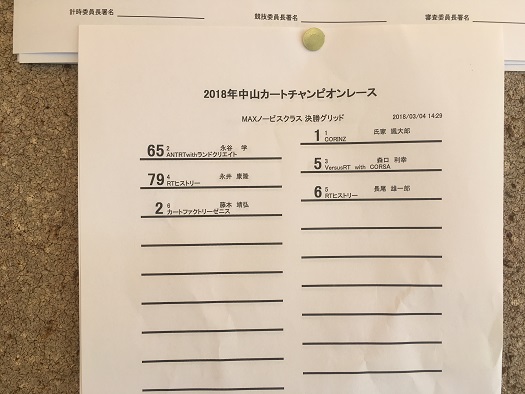 計時委員長署名
競技委員長署名
審査委員長署名
2018年中山カートチャンピオンレース
MAXノービスクラス 決勝グリッド
2018/03/04 14:29
1 1 氏家 颯大郎
CORINZ
65 2 永谷 学
ANTRTwithランドクリエイト
5 3 森口 利幸
VersusRT with CORSA
79 4 永井 康隆
RTヒストリー
6 5 長尾 雄一郎
RTヒストリー
2 6 藤本 靖弘
カートファクトリーゼニス